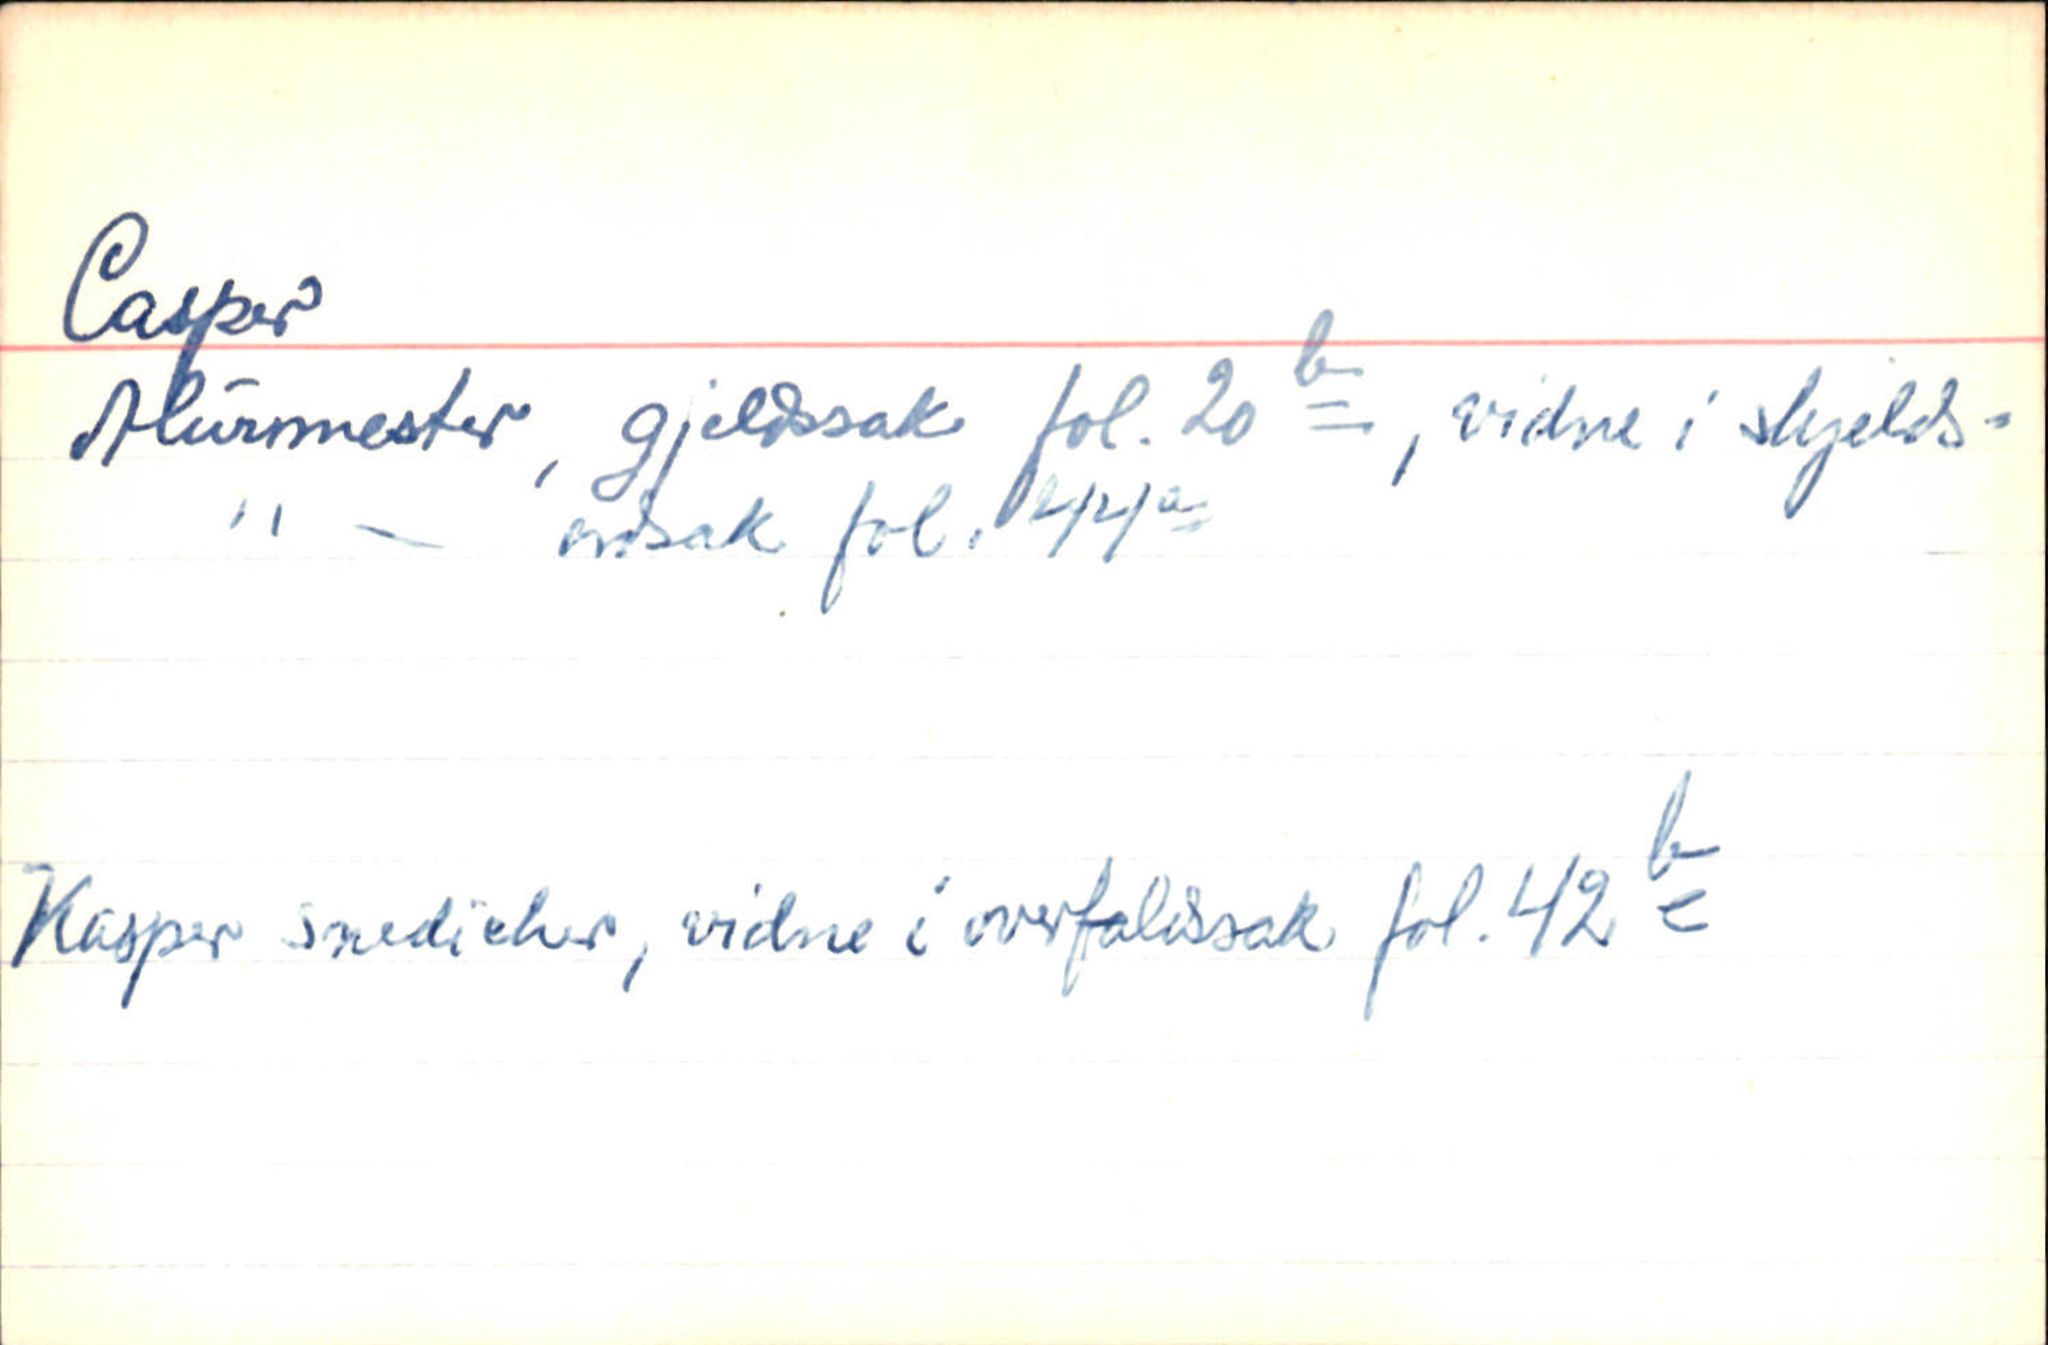 Casper
Mūrmester, gjeldssak fol. 20 b, vidne i skjelds-
" — ordsak fol. 44a
Kasper snedicher, vidne i overfaldssak fol. 42 b